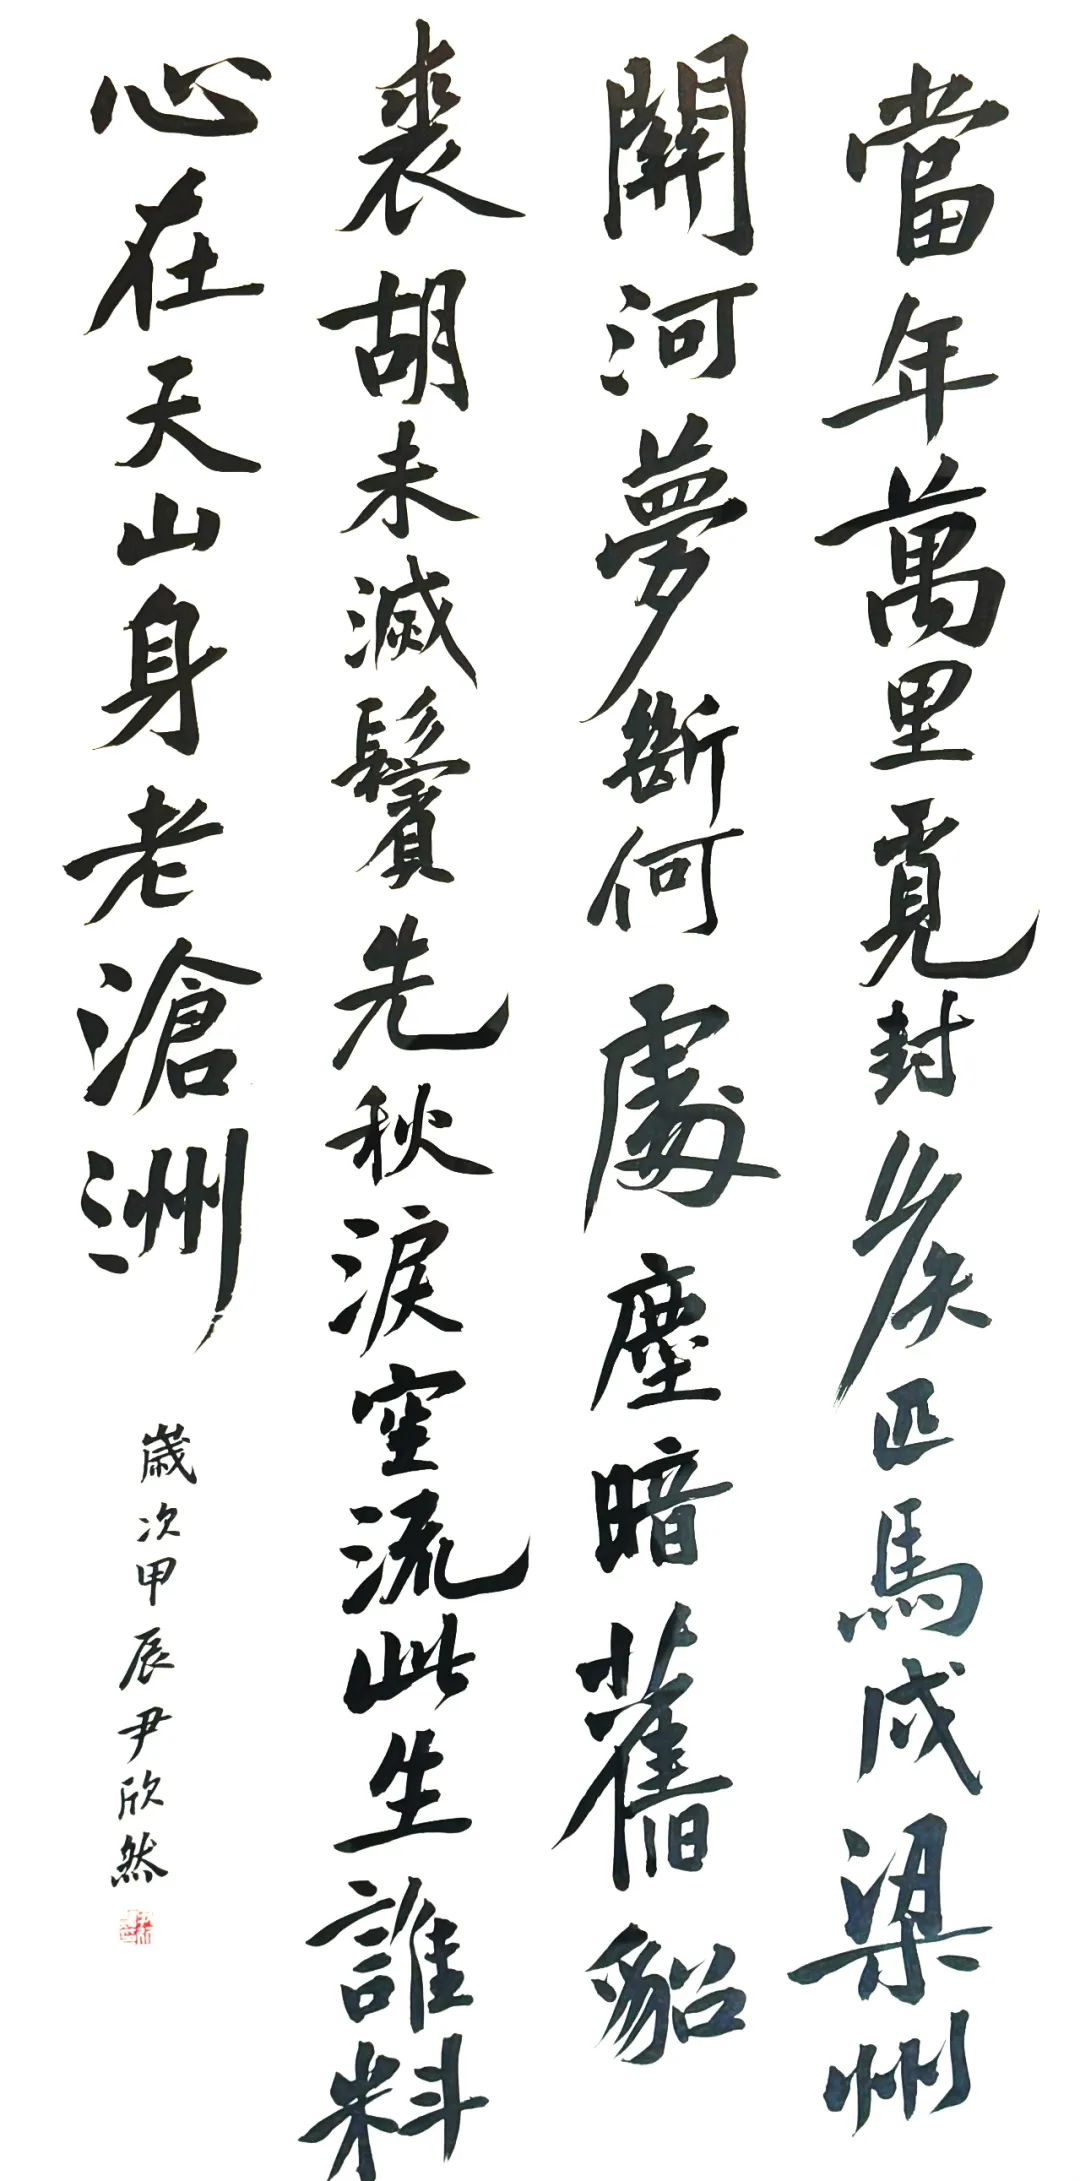 當年萬里覔封矦匹馬戍梁州
關河夢斷何處塵暗舊貂
裘胡未滅鬢先秋淚空流此生誰料
心在天山身老滄洲
歲次甲辰尹欣然